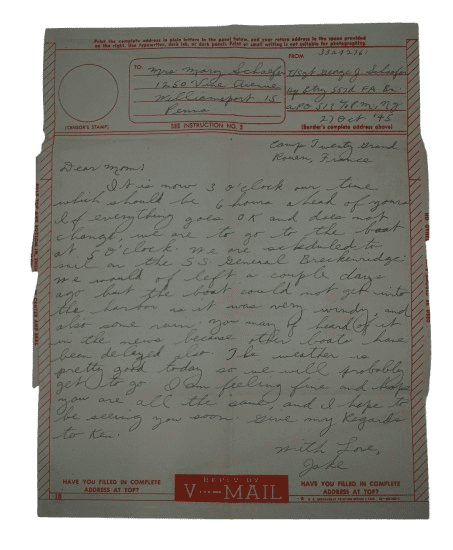 Print the complete address in plain letters in the panel below, and your return address in the space provided
on the right. Use typewriter, dark ink, or dark pencil. Faint or small writing is not suitable for photographing.
33292761
TO:
FROM
Mrs Mary Schaefer
1250 Vine Avenue
Williamsport 15
Penna
T/Sgt George J. Schaefer
Hq Btry 557d FA Bn.
27 Oct '45
(CENSOR'S STAMP)
SEE INSTRUCTION NO. 2
(Sender's complete address above)
Camp Twenty Grand
Rouen, France
Dear Mom:
It is now 3 o'clock our time
which should be 6 hours ahead of yours
If everything goes OK and does not
change, we are to go to the boat
at 5 o'clock. We are scheduled to
sail on the S.S. General Breckenridge.
We would of left a couple days
ago but the boat could not get into
the harbor as it was very windy, and
also some rain, you may of heard of it
in the news because other boats have
been delayed also. The weather is
pretty good today so we will probably
get to go. I am feeling fine and hope
you are all the same, and I hope to
be seeing you soon. Give my regards
to Ken.
With Love,
Jake
HAVE YOU FILLED IN COMPLETE
ADDRESS AT TOP?
REPLY BY
V···—MAIL
HAVE YOU FILLED IN COMPLETE
ADDRESS AT TOP?